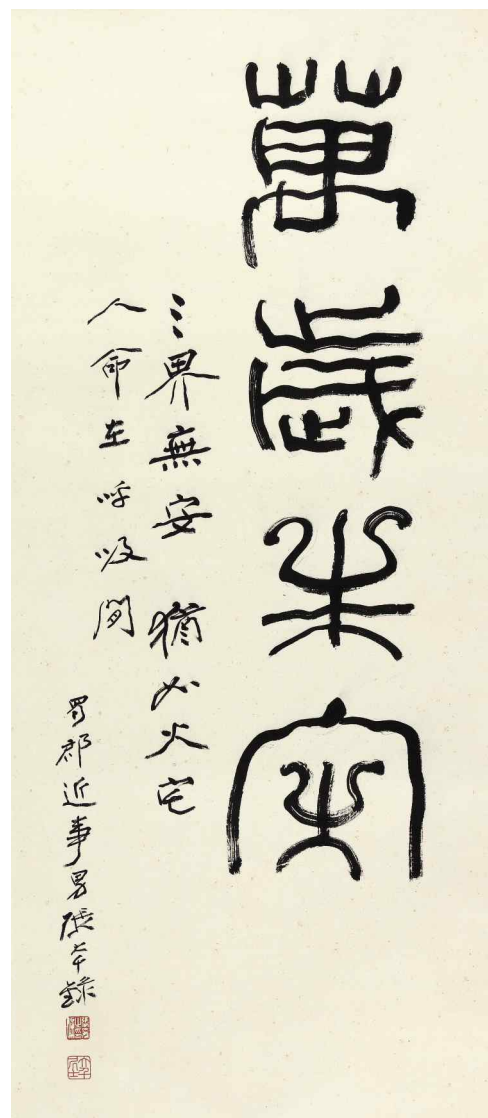 萬歲
三界無安 猶如火宅
人命在呼吸間
蜀郡近事男張大千錄